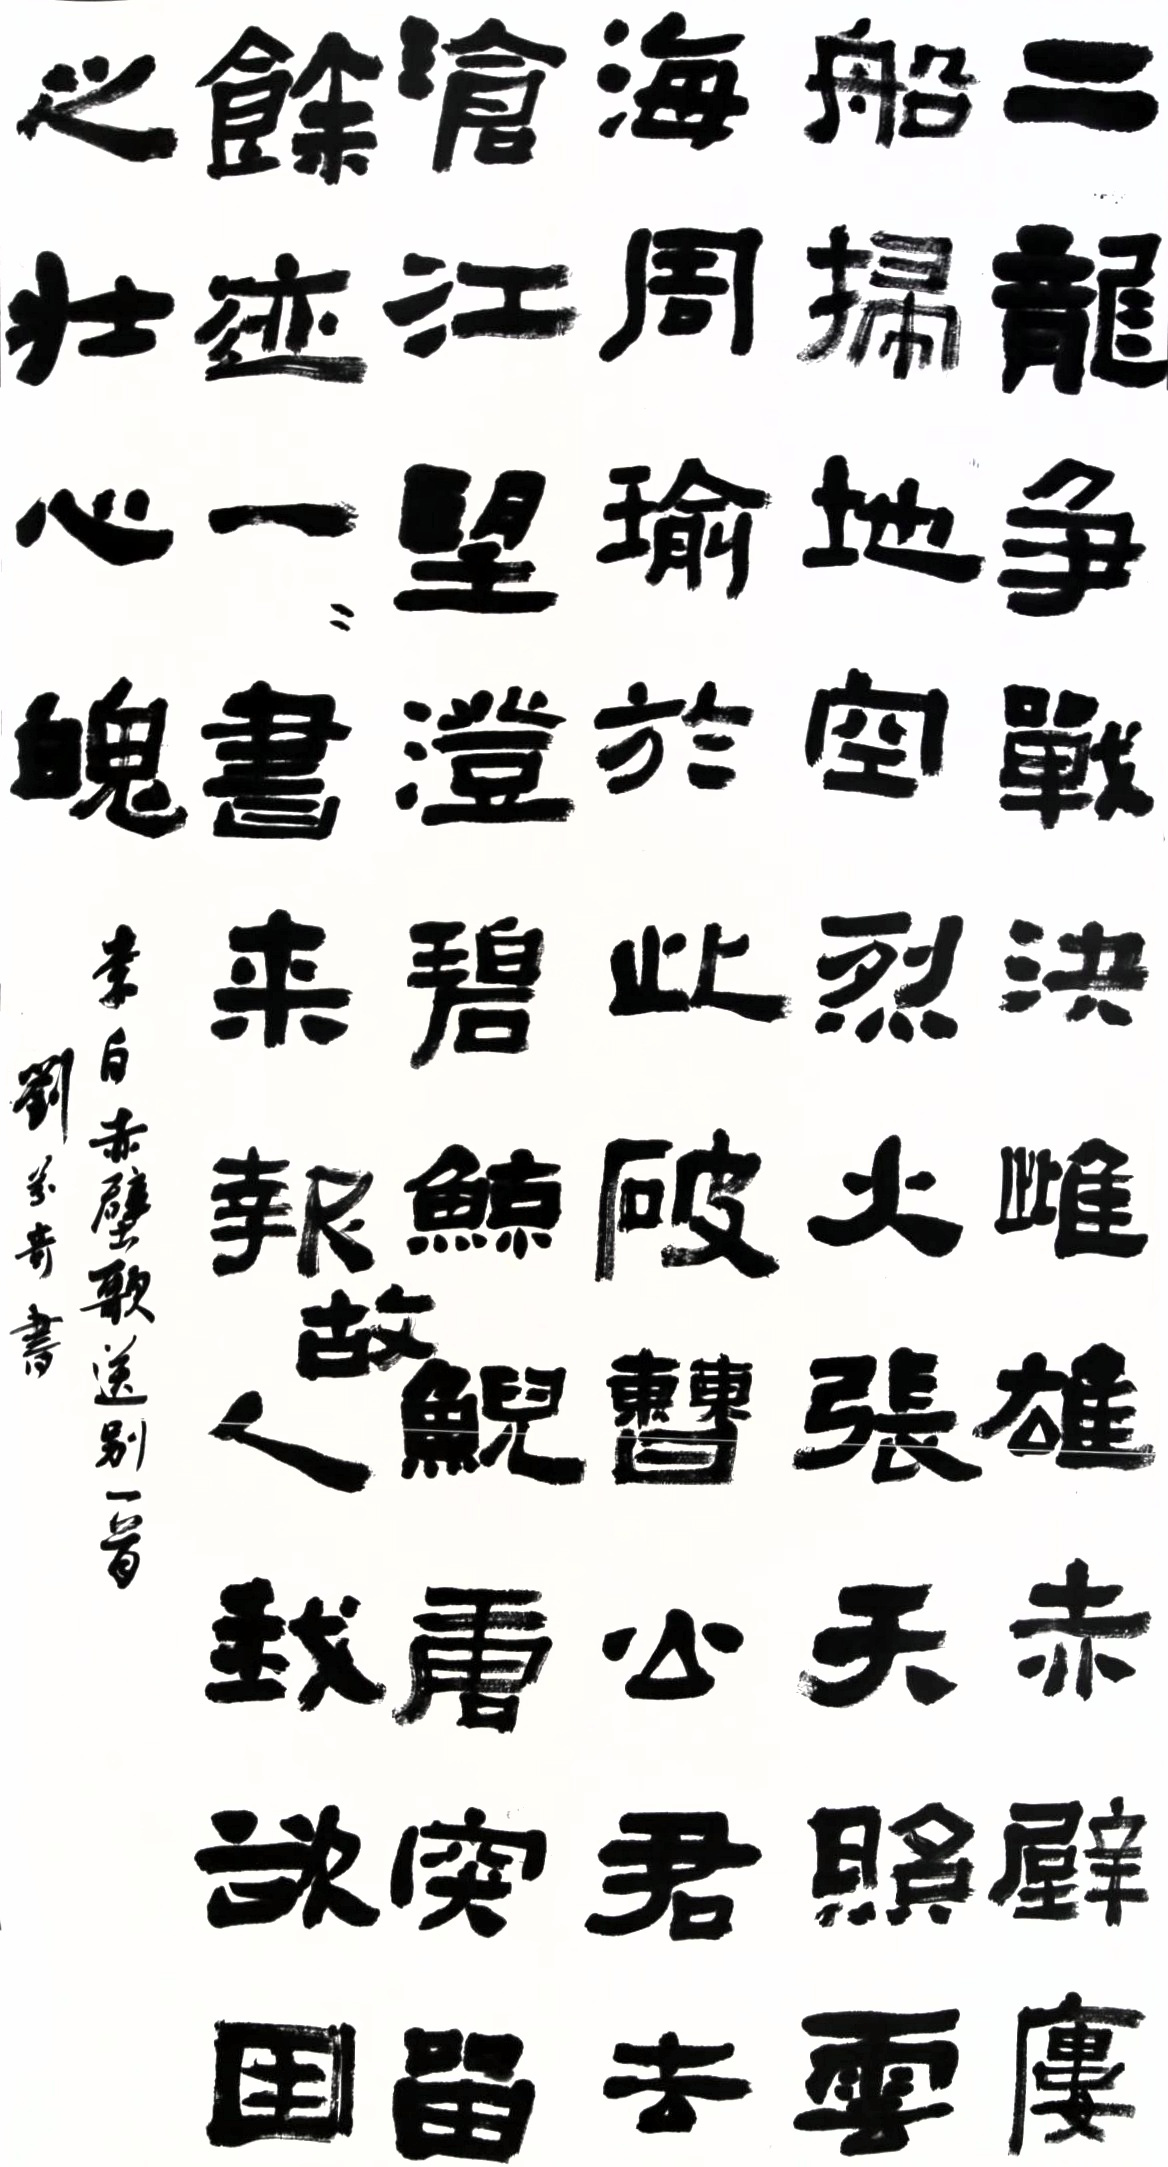 二龍争戰決雌雄赤壁廔
船掃地空烈火張天照雲
海周瑜於此破曹公君去
滄江望澄碧鯨鯢唐突留
餘迹一〻書来報故人我欲因
之壯心魄
李白赤壁歌送别一首
劉奇書